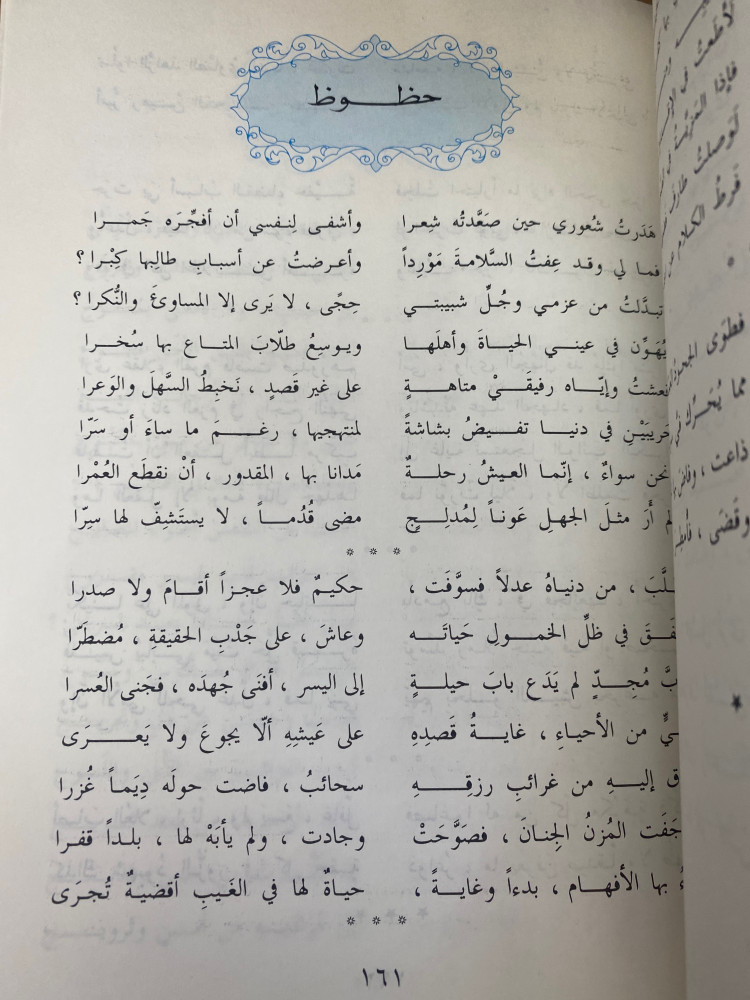 حظــوظ
هَدَرتُ شُعوري حين صَعَّدتُه شِعرا وأشفـى لِنفسي أن أفجِّرَه جَمـرا
فما لي وقـد عِفتُ السَّلامةَ مَوْرِداً وأعـرضتُ عن أسبابِ طالِبِها كِبْرا ؟
تبدَّلتُ من عزمي وجُلِّ شبيبتـي حِجًى ، لا يَرى إلا المساوئَ والنُّكرا ؟
يُهَوِّن في عينـي الحياةَ وأهلَهـا ويـوسِعُ طلّابَ المتـاع بها سُخـرا
فعشتُ وإيّـاه رفيقَـيْ متاهـةٍ على غير قَصدٍ ، نَخبِطُ السَّهلَ والوَعرا
غريبَيْنِ في دنيـا تفـيضُ بشاشةً لمنتهجيها ، رغـمَ ما ساءَ أو سَرّا
نحن سواءٌ ، إنّما العيشُ رحلـةٌ مَدانا بها ، المقدور ، أنْ نقطَع العُمْرا
لم أرَ مثلَ الجهلِ عَوناً لِمُدلِـجٍ مضى قُدُماً ، لا يستَشِفّ لها سِرّا
من دنياهُ عدلاً فسوَّفَت ، حكيمٌ فلا عجزاً أقـامَ ولا صدرا
في ظلِّ الخمـولِ حَياتَـه وعاشَ ، على جَدْبِ الحقيقةِ ، مُضطَرّا
مُجـدٍّ لم يَدَع بابَ حيلـةٍ إلى اليسر ، أفنَى جُهدَه ، فجَنى العُسرا
من الأحياءِ ، غايـةُ قَصدِهِ على عَيشِهِ ألّا يجوعَ ولا يَعـرَى
إليـهِ من غرائبِ رزقِـهِ سحائبُ ، فاضت حولَه دِيَماً غُزرا
جَفَت المُزنُ الجِنانَ ، فصَوَّحَتْ وجادت ، ولم يأبَهْ لها ، بلـداً قفرا
بها الأفهام ، بدءاً وغايـةً ، حياةٌ لها في الغَيبِ أقضيةٌ تُجرَى
١٦١